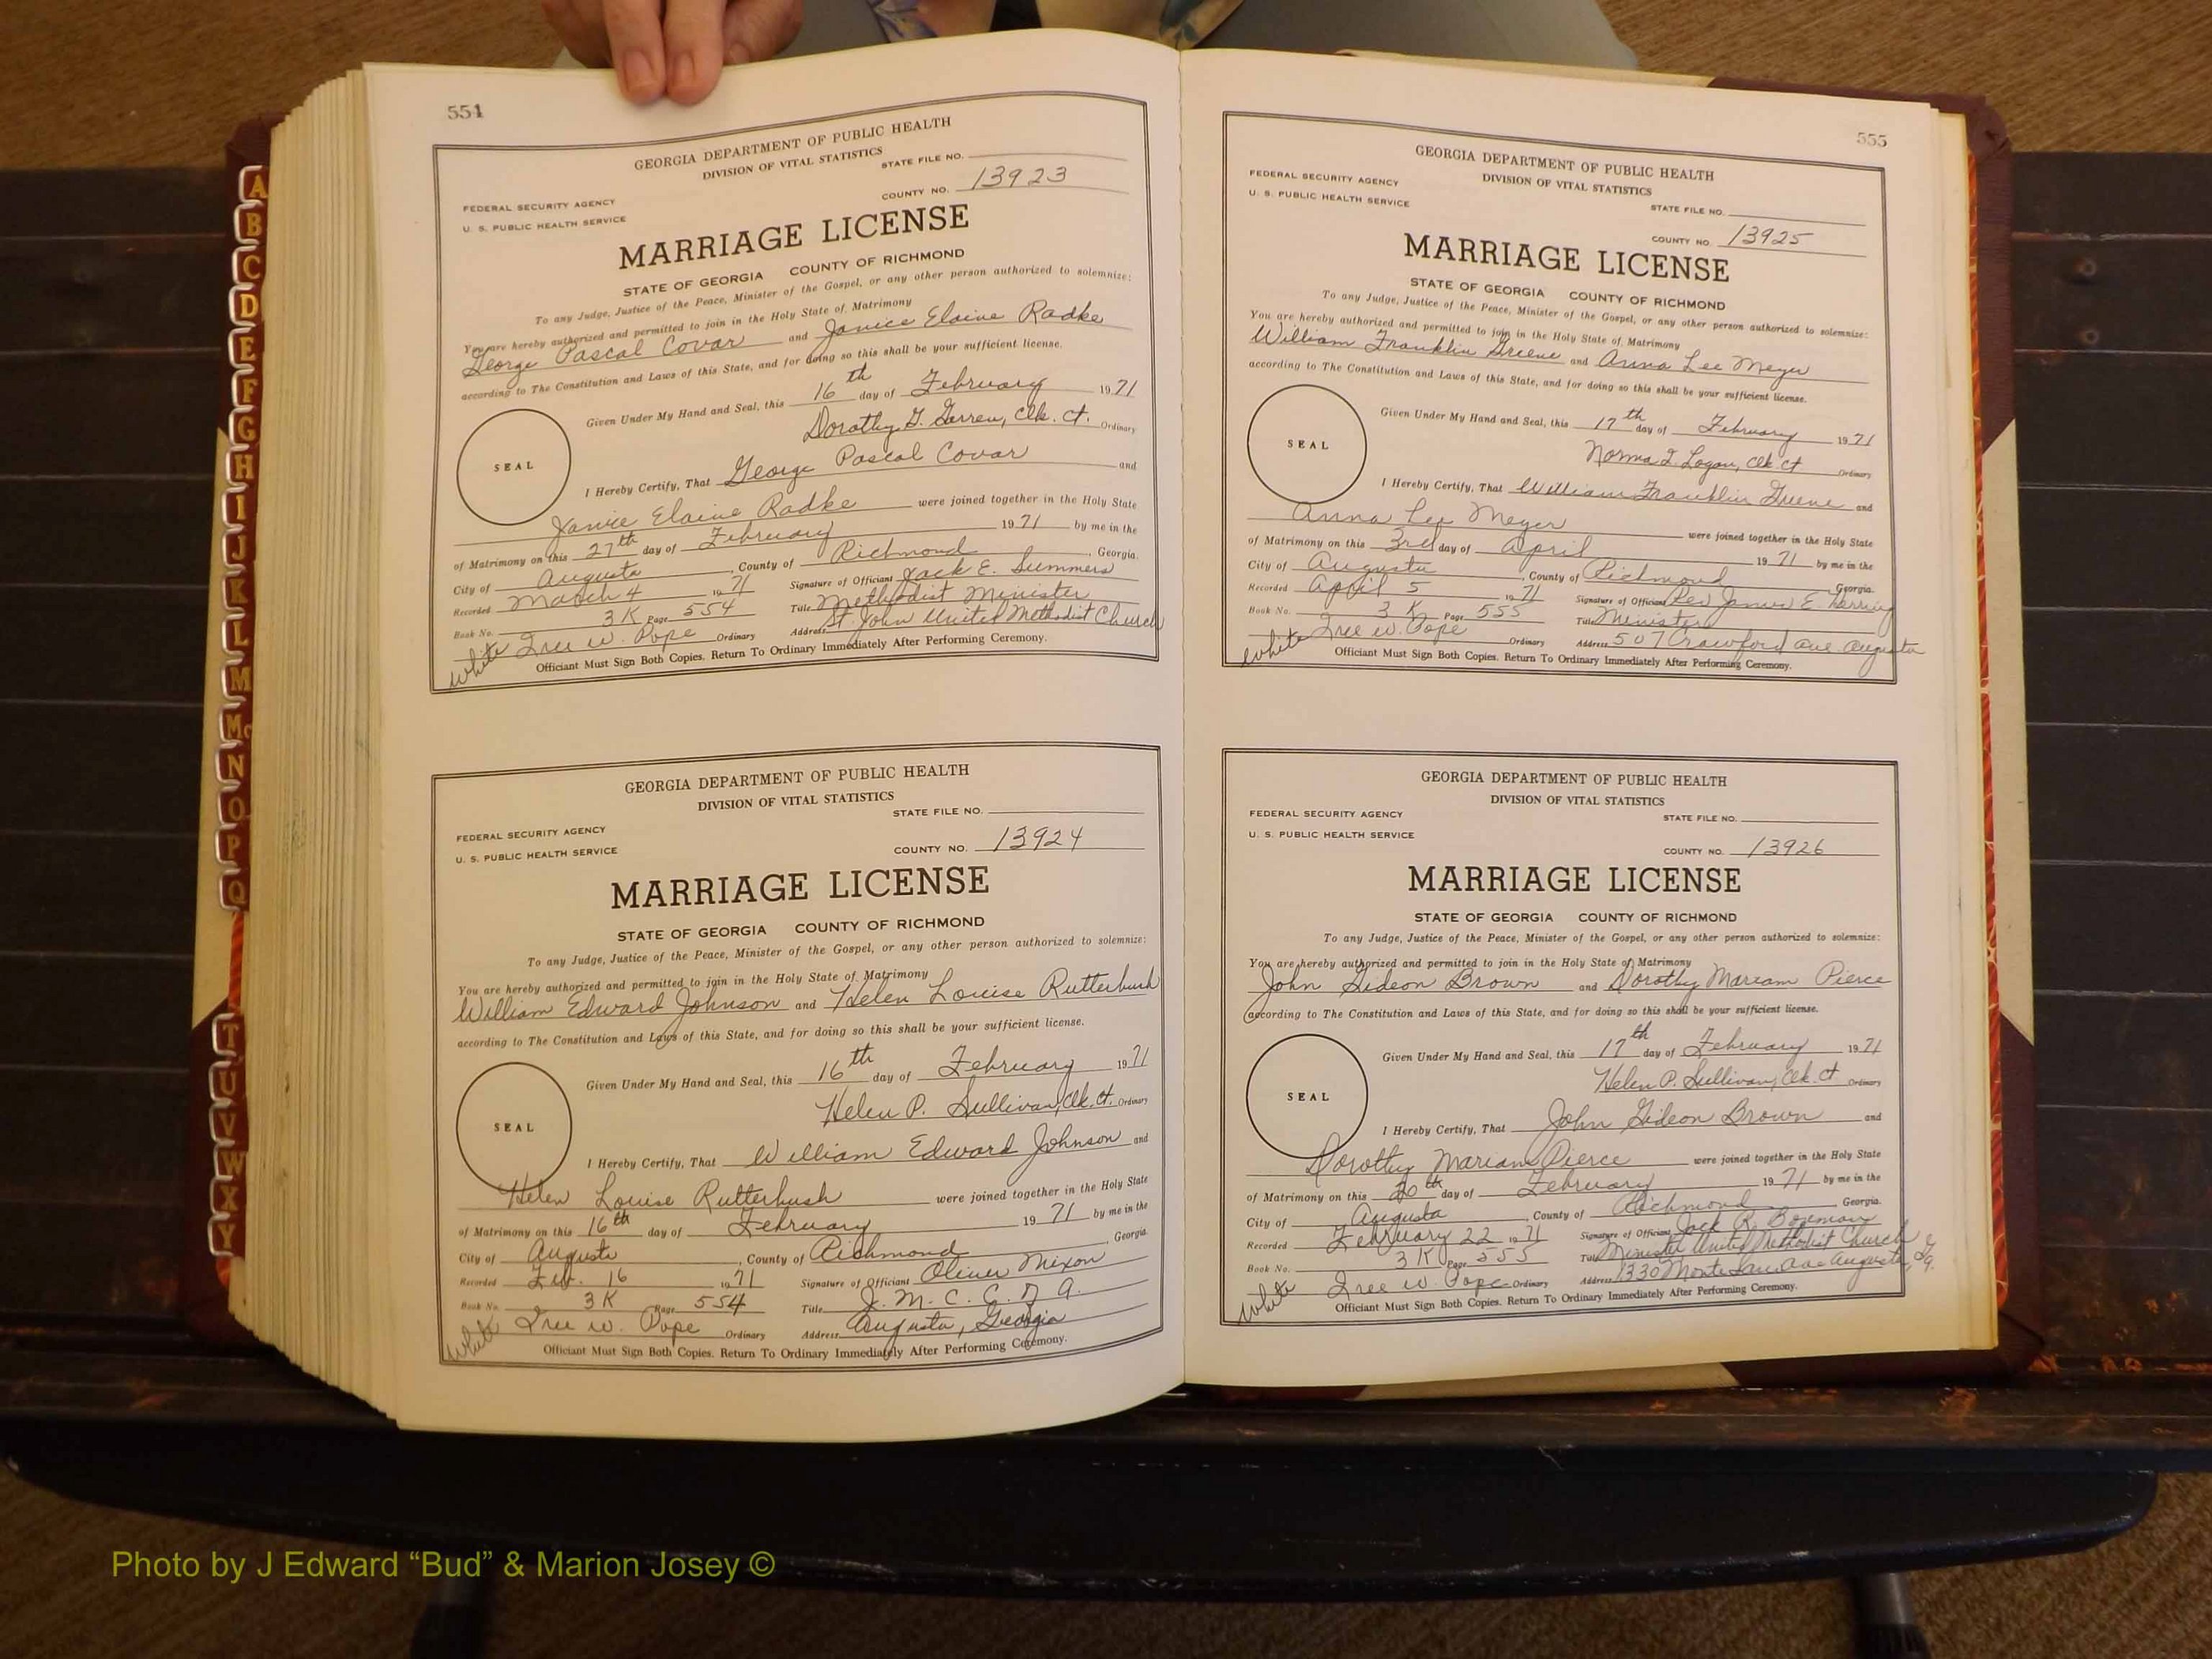 A
B
C
D
E
F
G
H
I
J
K
L
M
Mc
N
O
P
Q
T
U
V
W
X
Y
554
GEORGIA DEPARTMENT OF PUBLIC HEALTH
DIVISION OF VITAL STATISTICS
STATE FILE NO.
FEDERAL SECURITY AGENCY
U. S. PUBLIC HEALTH SERVICE
COUNTY NO. 13923
MARRIAGE LICENSE
STATE OF GEORGIA COUNTY OF RICHMOND
To any Judge, Justice of the Peace, Minister of the Gospel, or any other person authorized to solemnize:
You are hereby authorized and permitted to join in the Holy State of Matrimony
George Pascal Covar and Janice Elaine Radke
according to The Constitution and Laws of this State, and for doing so this shall be your sufficient license.
Given Under My Hand and Seal, this 16th day of February 1971
Dorothy G. Garren, Clk. Ct. Ordinary
SEAL
I Hereby Certify, That George Pascal Covar and
Janice Elaine Radke were joined together in the Holy State
of Matrimony on this 27th day of February 1971 by me in the
City of Augusta, County of Richmond, Georgia.
Recorded March 4 1971 Signature of Officiant Jack E. Summers
Book No. 3K Page 554 Title Methodist Minister
white Ordinary Address St. John United Methodist Church
Officiant Must Sign Both Copies. Return To Ordinary Immediately After Performing Ceremony.
GEORGIA DEPARTMENT OF PUBLIC HEALTH
DIVISION OF VITAL STATISTICS
STATE FILE NO.
FEDERAL SECURITY AGENCY
U. S. PUBLIC HEALTH SERVICE
COUNTY NO. 13924
MARRIAGE LICENSE
STATE OF GEORGIA COUNTY OF RICHMOND
To any Judge, Justice of the Peace, Minister of the Gospel, or any other person authorized to solemnize:
You are hereby authorized and permitted to join in the Holy State of Matrimony
William Edward Johnson and Helen Louise Rutterbush
according to The Constitution and Laws of this State, and for doing so this shall be your sufficient license.
Given Under My Hand and Seal, this 16th day of February 1971
Helen P. Sullivan, Clk. Ct. Ordinary
SEAL
I Hereby Certify, That William Edward Johnson and
Helen Louise Rutterbush were joined together in the Holy State
of Matrimony on this 16th day of February 1971 by me in the
City of Augusta, County of Richmond, Georgia
Recorded Feb. 16 1971 Signature of Officiant Oliver Mixon
Book No. 3K Page 554 Title
white W. Pope Ordinary Address Augusta, Georgia
Officiant Must Sign Both Copies. Return To Ordinary Immediately After Performing Ceremony.
555
GEORGIA DEPARTMENT OF PUBLIC HEALTH
DIVISION OF VITAL STATISTICS
FEDERAL SECURITY AGENCY
U. S. PUBLIC HEALTH SERVICE
STATE FILE NO.
COUNTY NO. 13925
MARRIAGE LICENSE
STATE OF GEORGIA COUNTY OF RICHMOND
To any Judge, Justice of the Peace, Minister of the Gospel, or any other person authorized to solemnize:
You are hereby authorized and permitted to join in the Holy State of Matrimony
William Franklin Greene and Anna Lee Meyer
according to The Constitution and Laws of this State, and for doing so this shall be your sufficient license.
Given Under My Hand and Seal, this 17th day of February 1971
Norma I. Logan, Clk. Ct Ordinary
SEAL
I Hereby Certify, That William Franklin Greene and
Anna Lee Meyer were joined together in the Holy State
of Matrimony on this 3rd day of April 1971 by me in the
City of Augusta, County of Richmond Georgia.
Recorded April 5 1971 Signature of Officiant Rev James E. Herring
Book No. 3K Page 555 Title Minister
white W. Pope Ordinary Address 507 Crawford Ave. Augusta
Officiant Must Sign Both Copies. Return To Ordinary Immediately After Performing Ceremony.
GEORGIA DEPARTMENT OF PUBLIC HEALTH
DIVISION OF VITAL STATISTICS
FEDERAL SECURITY AGENCY
U. S. PUBLIC HEALTH SERVICE
STATE FILE NO.
COUNTY NO. 13926
MARRIAGE LICENSE
STATE OF GEORGIA COUNTY OF RICHMOND
To any Judge, Justice of the Peace, Minister of the Gospel, or any other person authorized to solemnize:
You are hereby authorized and permitted to join in the Holy State of Matrimony
John Gideon Brown and Dorothy Mariam Pierce
according to The Constitution and Laws of this State, and for doing so this shall be your sufficient license.
Given Under My Hand and Seal, this 17th day of February 1971
Helen P. Sullivan, Clk. Ct Ordinary
SEAL
I Hereby Certify, That John Gideon Brown and
Dorothy Mariam Pierce were joined together in the Holy State
of Matrimony on this 20th day of February 1971 by me in the
City of Augusta, County of Richmond Georgia.
Recorded February 22 1971 Signature of Officiant Jack R.
Book No. 3K Page 555 Title Minister United Methodist Church
white W. Pope Ordinary Address 1330 Monte Sano Ave Augusta, Ga.
Officiant Must Sign Both Copies. Return To Ordinary Immediately After Performing Ceremony.
Photo by J Edward “Bud” & Marion Josey ©